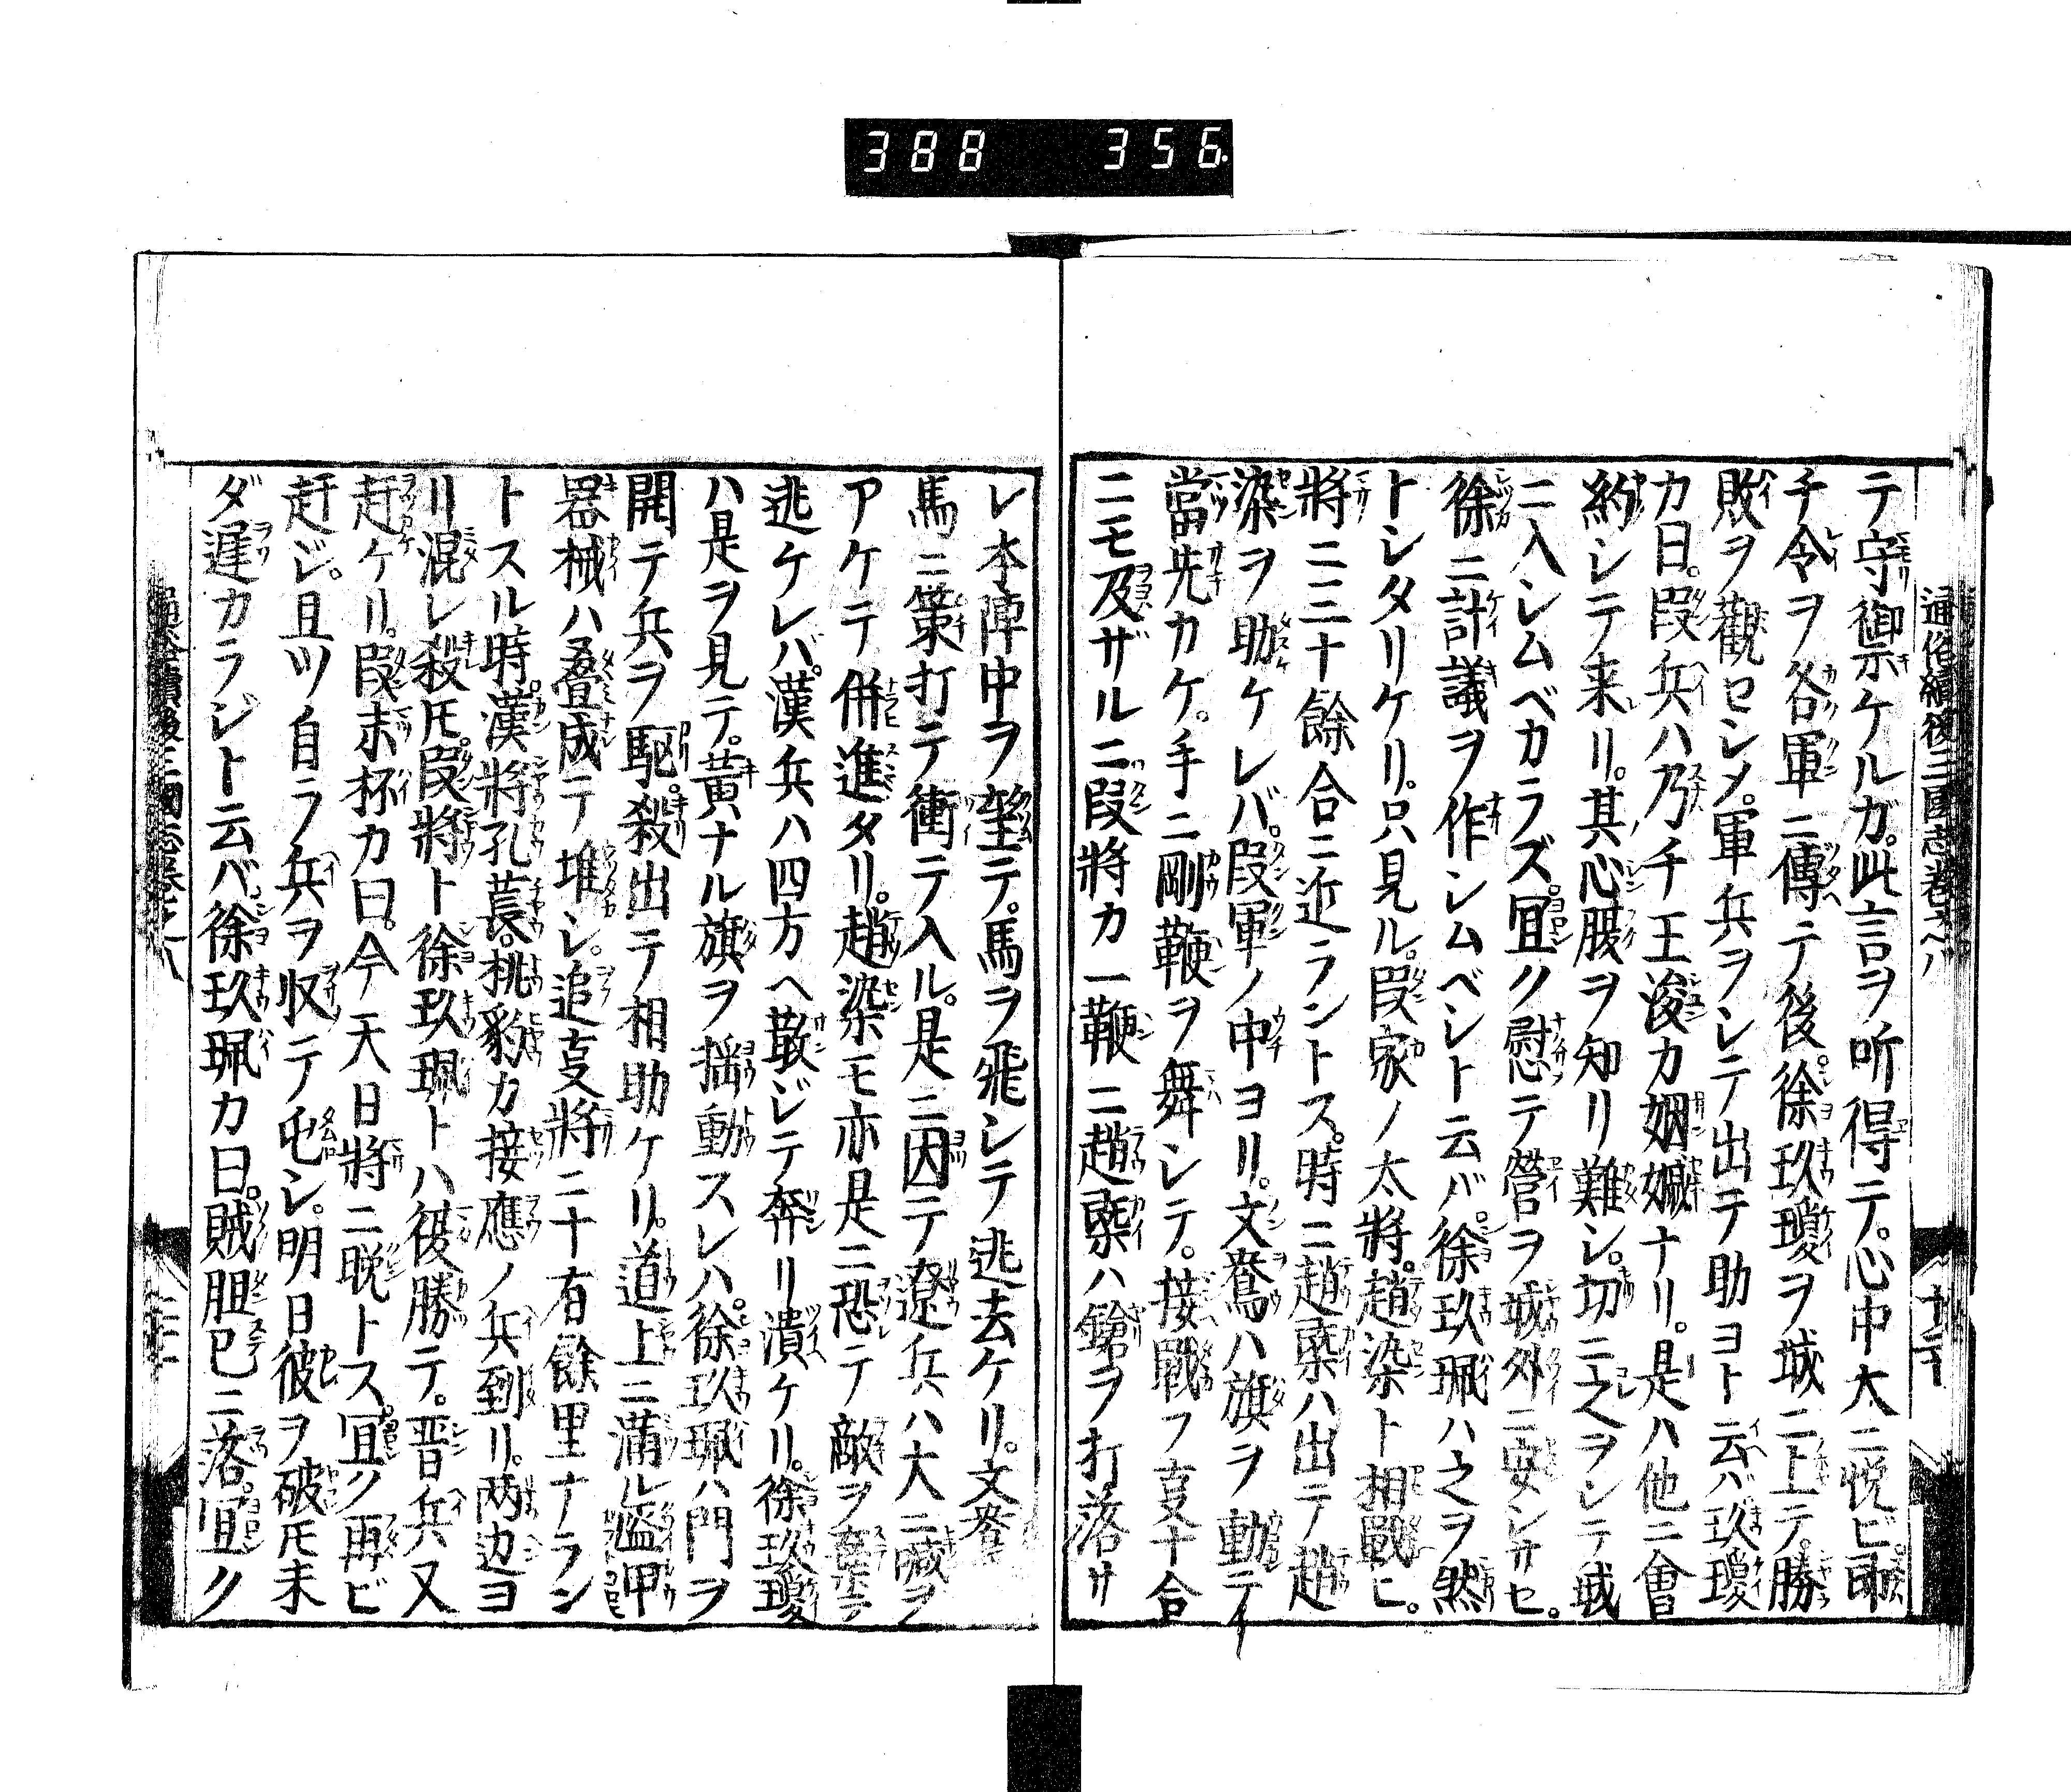 388 356
通俗續後三國志卷之八
テ守禦シケルガ。此言ヲ听得テ。心中大ニ悦ビ即
チ令ヲ各軍ニ傳テ後。徐玖瓊ヲ城ニ上テ。勝
敗ヲ觀セシメ。軍兵ヲシテ出テ助ヨト云バ玖瓊
カ曰。叚兵ハ乃チ王浚カ姻嫐ナリ。是ハ他ニ會
約シテ来リ。其心腹ヲ知リ難シ。切ニ之ヲシテ城
ニ入シムベカラズ。宜ク慰テ營ヲ城外ニ安ンサセ。
徐ニ計議ヲ作シムベシト云バ。徐玖珮ハ之ヲ然
トシタリケリ。只見ル。叚家ノ太將。趙染ト相戰ヒ。
將ニ三十餘合ニ近ラントス。時ニ趙槩ハ出テ趙
染ヲ助ケレバ。叚軍ノ中ヨリ。文鴦ハ旗ヲ動テ
當先カケ。手ニ剛鞭ヲ舞シテ。接戰フ亥十合
ニモ及ザルニ叚將カ一鞭ニ趙槩ハ鎗ヲ打落サ
レ本陣中ヲ望テ。馬ヲ飛シテ逃去ケリ。文鴦
馬ニ策打テ衝テ入ル。是ニ因テ遼兵ハ大ニ喊ヲ
アケテ併進タリ。趙染モ亦是ニ恐テ敵ヲ棄テ
逃ケレバ。漢兵ハ四方ヘ散ジテ奔リ潰ケリ。徐玖瓊
ハ是ヲ見テ。黃ナル旗ヲ揺動スレハ。徐玖珮ハ門ヲ
開テ兵ヲ駈。殺出テ相助ケリ。道上ニ滿ル盔甲
器械ハ疊成テ堆シ。追亥將ニ十有餘里ナラン
トスル時。漢將孔萇。桃豹カ接應ノ兵到リ。两边ヨ
リ混レ殺氏。叚將ト徐玖珮トハ彼勝テ。晋兵又
赶ケリ。叚末杯カ曰。今天日將ニ晚トス。宜ク再ビ
赶ジ。且ツ自ラ兵ヲ収テ屯シ。明日彼ヲ破氏未
ダ遲カラジト云バ。徐玖珮カ曰。賊胆已ニ落。宜ク